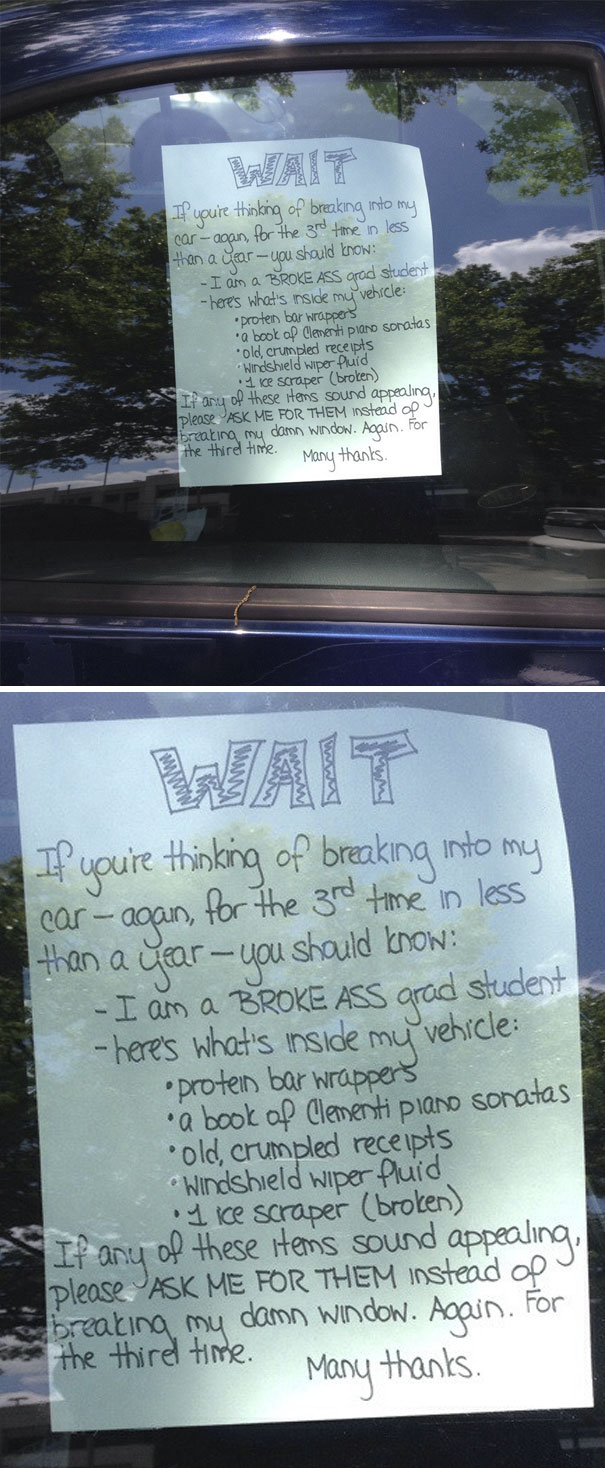 WAIT
If you're thinking of breaking into my
car – again, for the 3rd time in less
than a year – you should know:
- I am a BROKE ASS grad student
- here's what's inside my vehicle:
• protein bar wrappers
• a book of Clementi piano sonatas
• old, crumpled receipts
• windshield wiper fluid
• 1 ice scraper (broken)
If any of these items sound appealing,
please ASK ME FOR THEM instead of
breaking my damn window. Again. For
the third time. Many thanks.
WAIT
If you're thinking of breaking into my
car – again, for the 3rd time in less
than a year – you should know:
- I am a BROKE ASS grad student
- here's what's inside my vehicle:
• protein bar wrappers
• a book of Clementi piano sonatas
• old, crumpled receipts
• windshield wiper fluid
• 1 ice scraper (broken)
If any of these items sound appealing,
please ASK ME FOR THEM instead of
breaking my damn window. Again. For
the third time. Many thanks.